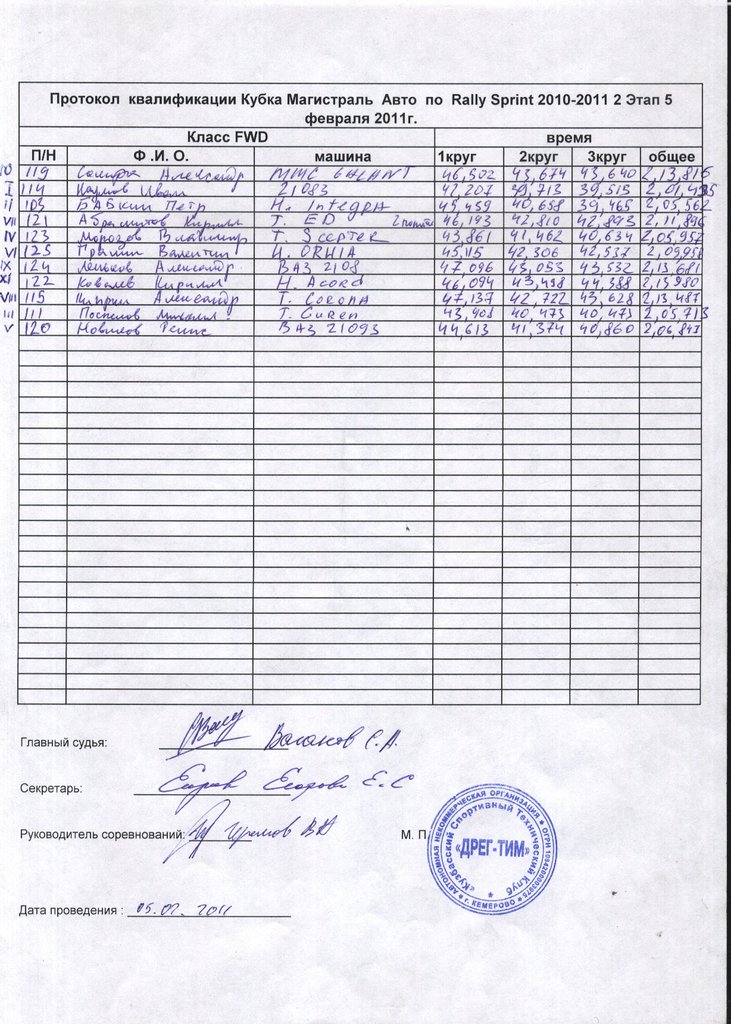 Протокол квалификации Кубка Магистраль Авто по Rally Sprint 2010-2011 2 Этап 5
февраля 2011г.
Класс FWD время
П/Н Ф .И. О. машина 1круг 2круг 3круг общее
119 Александр MMC GALANT 46,502 43,674 43,640 2,13,816
I 114 Наумов Иван 21083 42,207 39,713 39,515
II 103 БАБКИН Петр H. Integra 45,439 40,658 39,465 2,05,562
VII 121 Абрамитов Кирилл T. ED 46,193 42,810 42,893 2,11,896
IV 123 Морозов Владимир T. Scepter 43,861 41,462 40,634 2,05,957
VI 125 Валентин H. ORHIA 45,115 42,306 42,537 2,09,958
IX 124 Леньков Александр ВАЗ 2108 47,096 43,053 43,532 2,13,681
XI 122 Ковалев Кирилл H. Acord 46,094 43,498 44,388 2,13,980
VIII 115 Киприн Александр T. Corona 47,137 42,722 43,628 2,13,487
III 111 Поспелов Михаил T. Curen 43,408 40,473 40,473 2,05,713
V 120 Новиков Денис ВАЗ 21093 44,613 41,374 40,860 2,06,847
Главный судья: С.А.
Секретарь: Егорова Е.С
Руководитель соревнований: В.А
М. П.
АВТОНОМНАЯ НЕКОММЕРЧЕСКАЯ ОРГАНИЗАЦИЯ
«Кузбасский Спортивный Технический Клуб
«ДРЕГ-ТИМ»
г. КЕМЕРОВО
Дата проведения : 05.02.2011